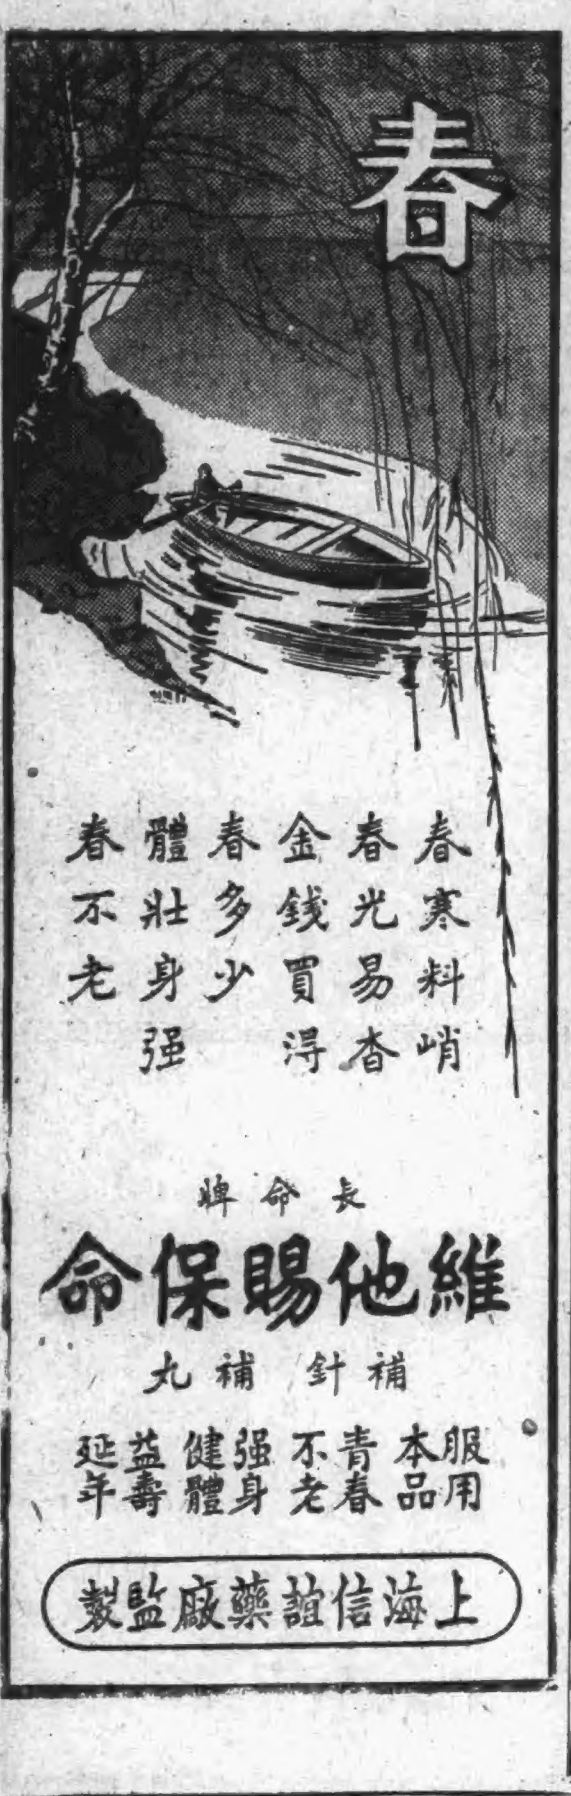 春
春寒料峭
春光易杳
金錢買得
春多少
體壯身强
春不老
長命牌
維他賜保命
補針 補丸
服用本品 青春不老 强身健體 益壽延年
上海信誼藥廠監製